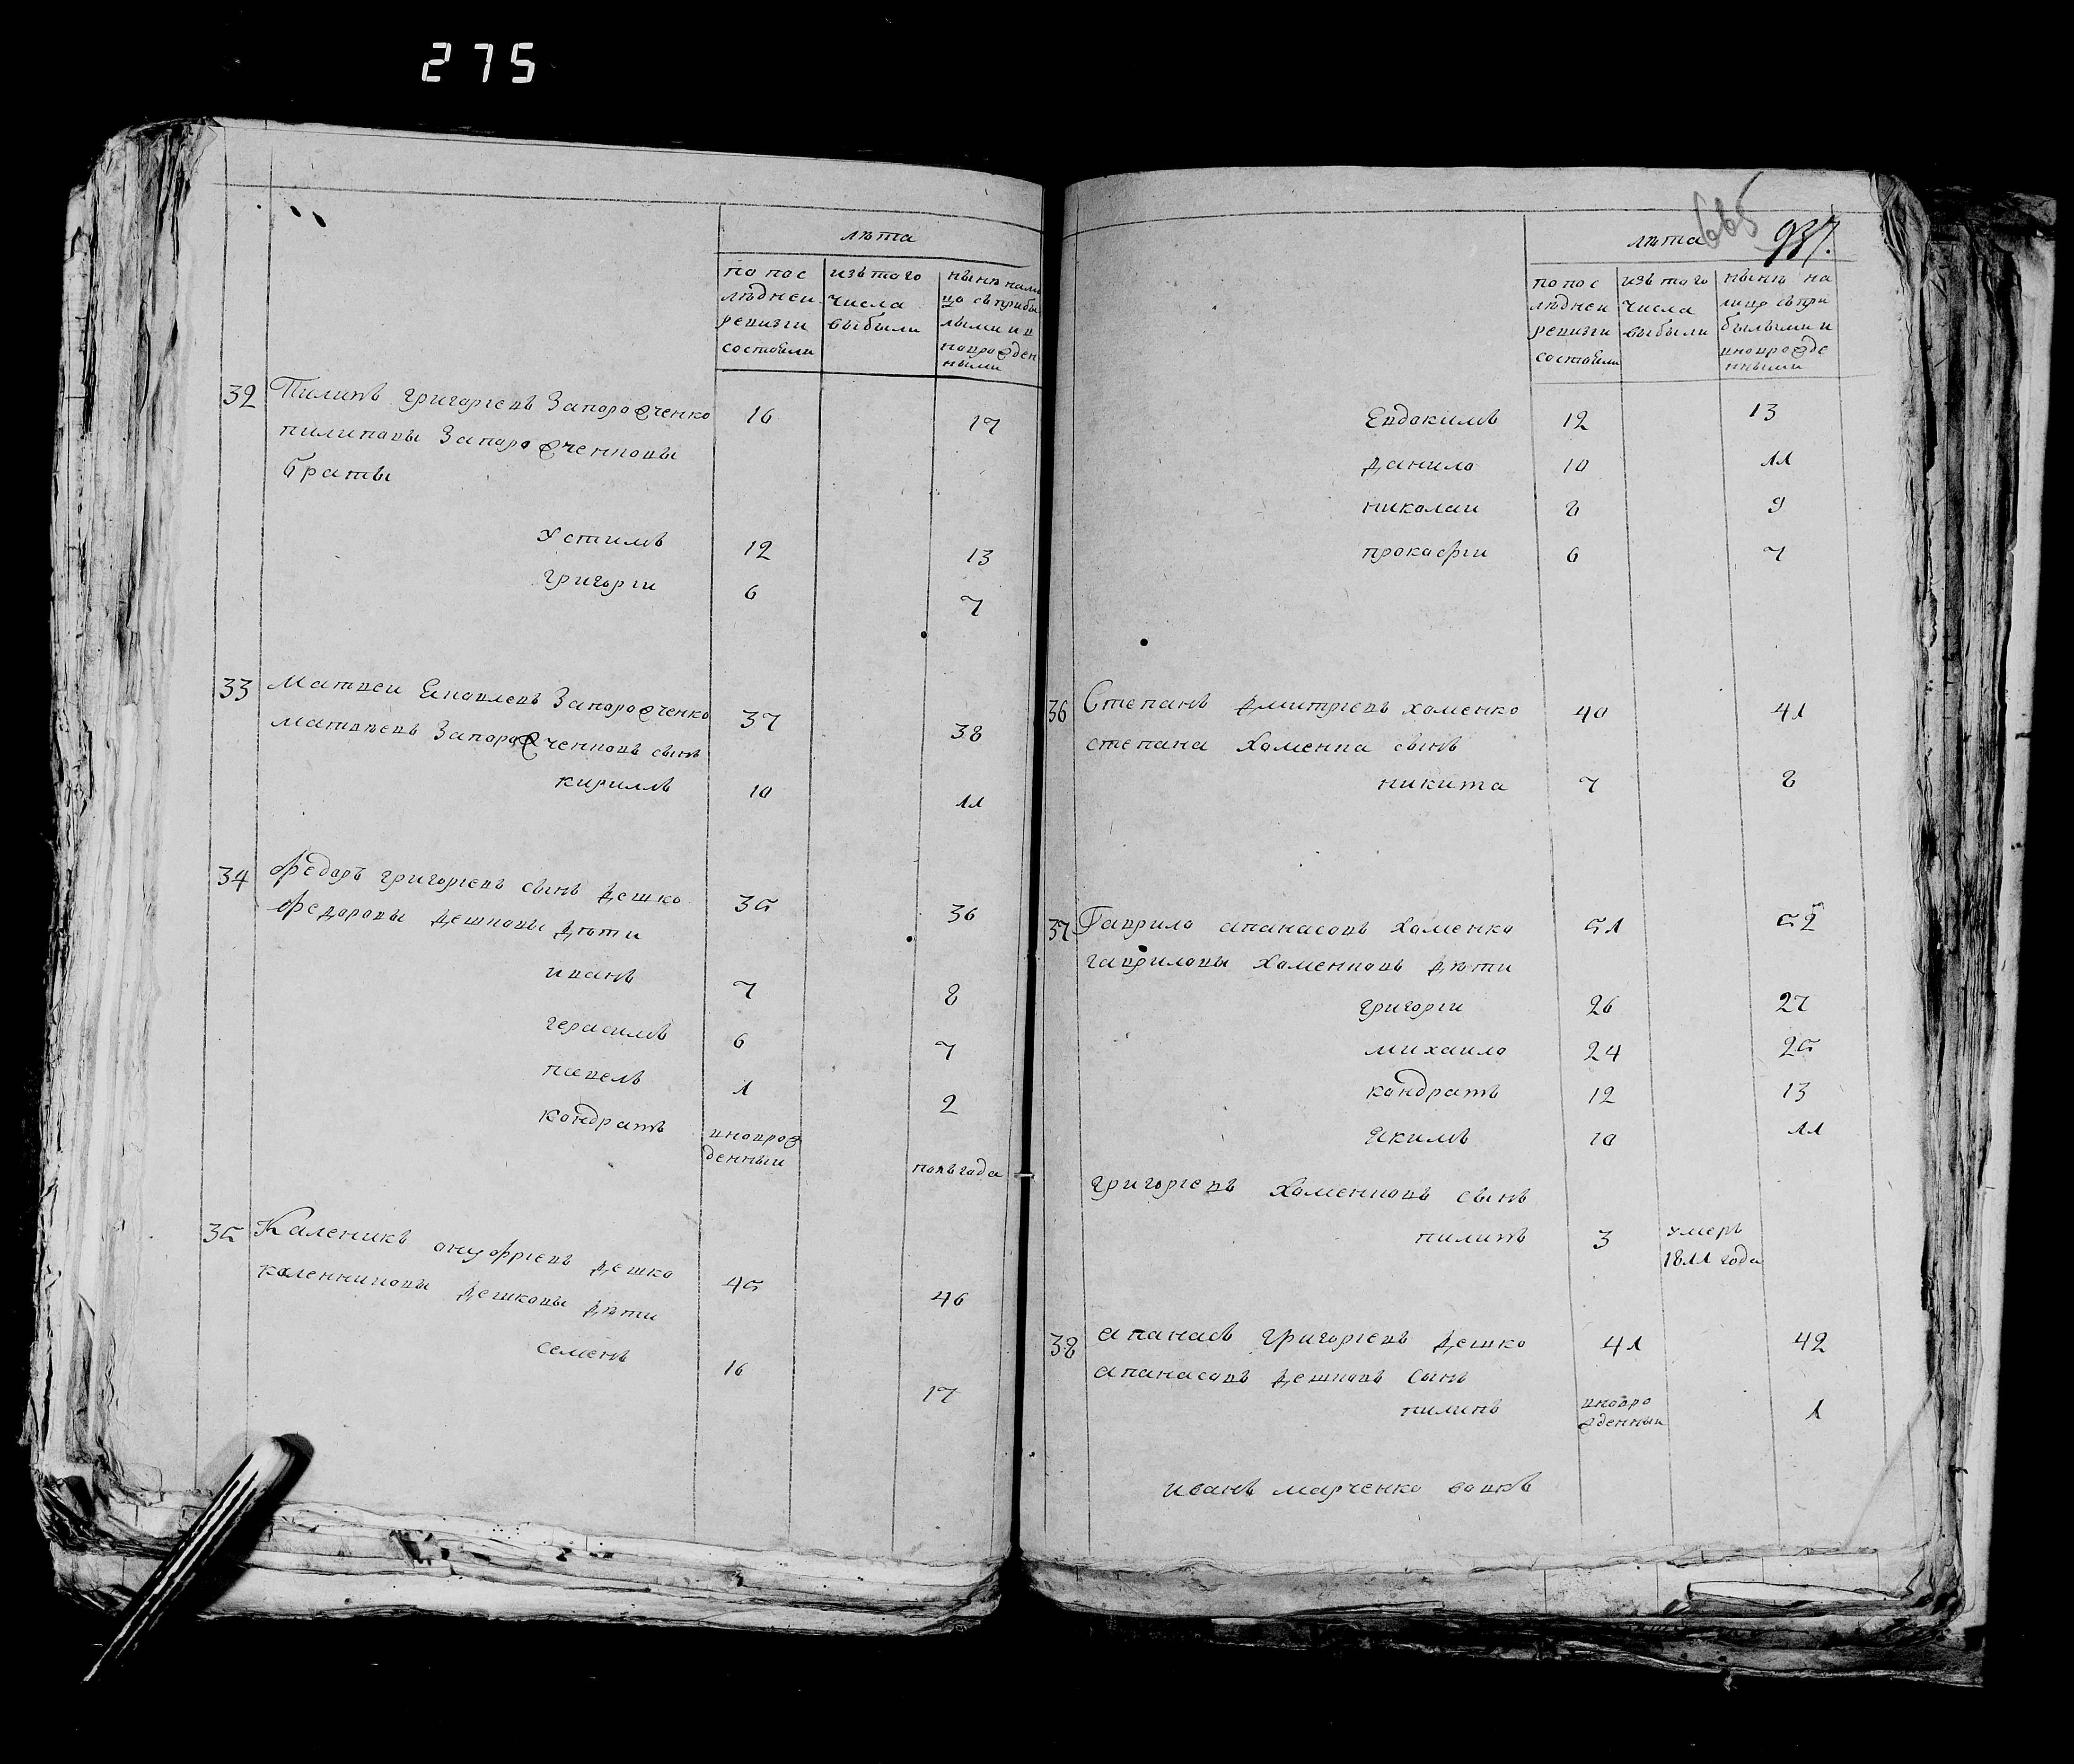 275
лѣта
по пос
лѣднеи
ревизіи
состояли
изъ того
числа
выбыли
нынѣ нали
цо съ прибы
лыми и в
новорожден
ными
32 Пилипъ григориевъ Запорожченко 16 17
пилиповы Запорожченковы
браты
Устимъ 12 13
григорiи 6 7
33 Матвеи Яковлевъ Запорожченко 37 38
матвѣевъ Запорожченковъ сынъ
кирилъ 10 11
34 Федоръ григориевъ сынъ Дешко 35 36
Федоровы дешковы дѣти
иванъ 7 8
герасимъ 6 7
павелъ 1 2
кондратъ вноврож
денныи полъ года
35 Каленикъ онуфриевъ дешко 45 46
калениковы дешковы дѣти
семенъ 16 17
665 937.
лѣта
по пос
лѣднеи
ревизіи
состояли
изъ того
числа
выбыли
нынѣ на
лицо съ при
былыми и
вноврожде
нными
Евдокимъ 12 13
данило 10 11
николаи 8 9
прокофiи 6 7
36 Степанъ дмитриевъ хоменко 40 41
степана Хоменка сынъ
никита 7 8
37 Гаврило апанасовъ Хоменко 51 52
гавриловы Хоменковъ дѣти
григорiи 26 27
михаило 24 25
кондратъ 12 13
Якимъ 10 11
григориевъ Хоменковъ сынъ
пилипъ 3 умеръ
1811 года
38 апанасъ григориевъ дешко 41 42
апанасовъ дешковъ сынъ
пилипъ вновро
жденныи 1
иванъ марченко вовкъ